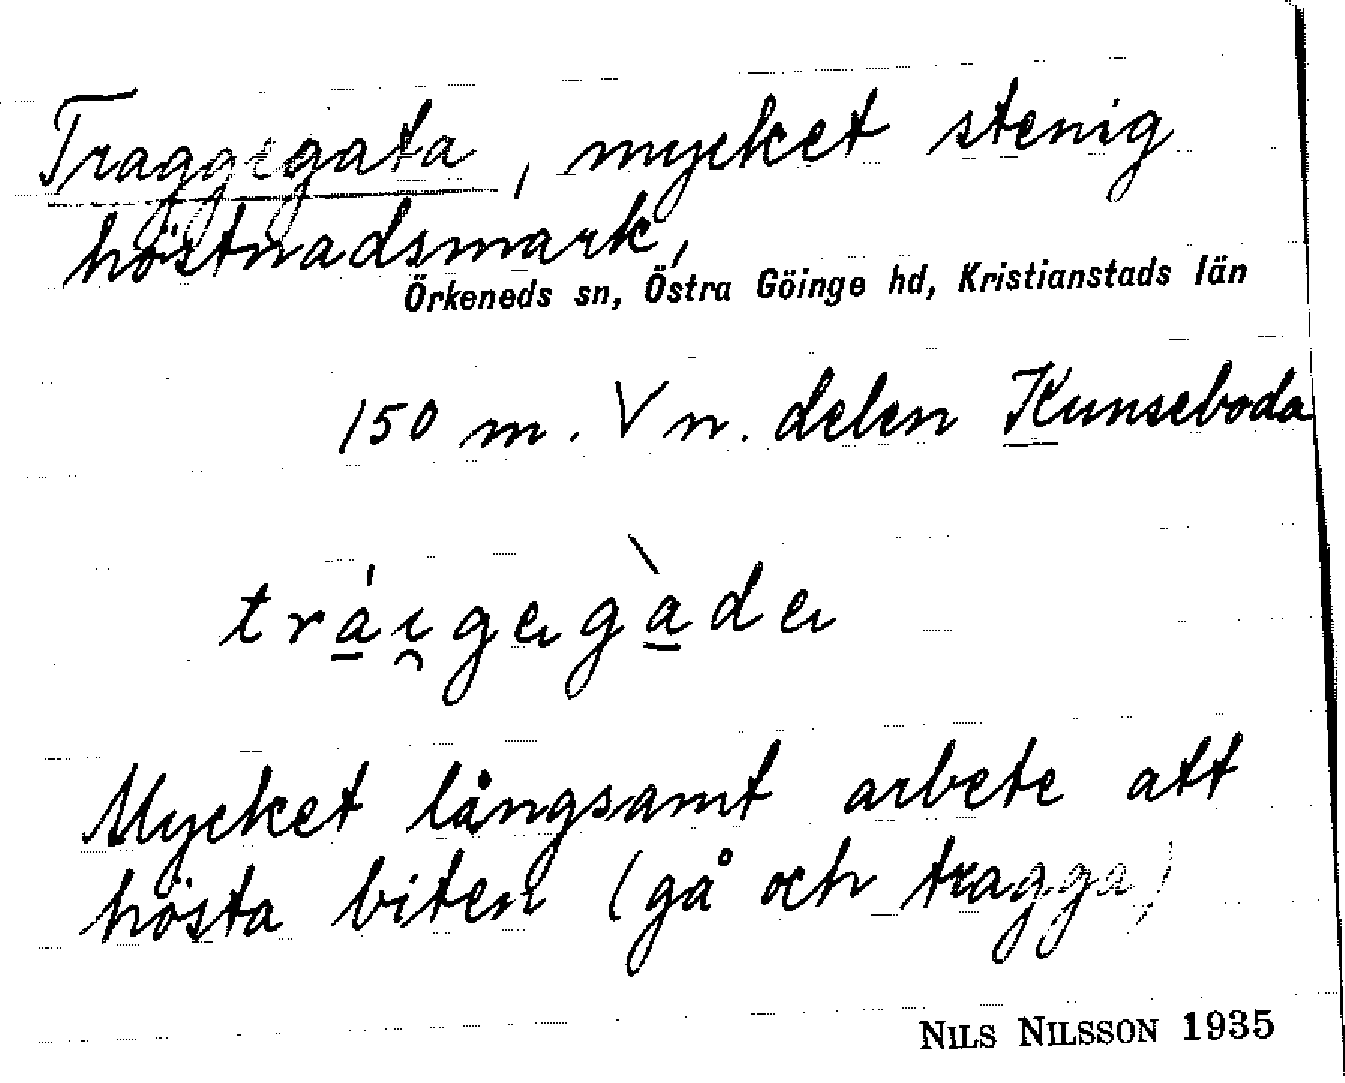 Traggegata, mycket stenig
höstnadsmark,
Örkeneds sn, Östra Göinge hd, Kristianstads län
150 m. V n. delen Kunseboda
trá̱i̯gegà̱de
Mycket långsamt arbete att
hösta biten (gå och tragga)
NILS NILSSON 1935